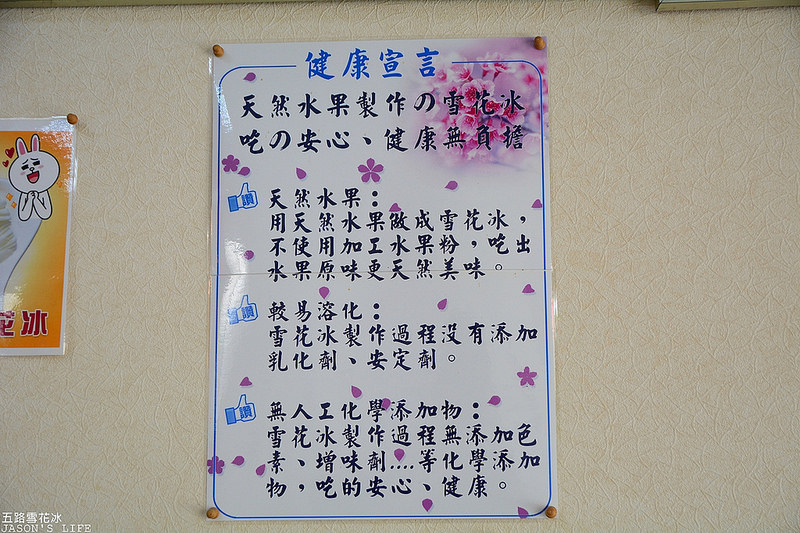 健康宣言
天然水果製作の雪花冰
吃の安心、健康無負擔
讚
天然水果：
用天然水果做成雪花冰，
不使用加工水果粉，吃出
水果原味更天然美味。
讚
較易溶化：
雪花冰製作過程没有添加
乳化劑、安定劑。
讚
無人工化學添加物：
雪花冰製作過程無添加色
素、增味劑....等化學添加
物，吃的安心、健康。
花冰
五路雪花冰
JASON'S LIFE